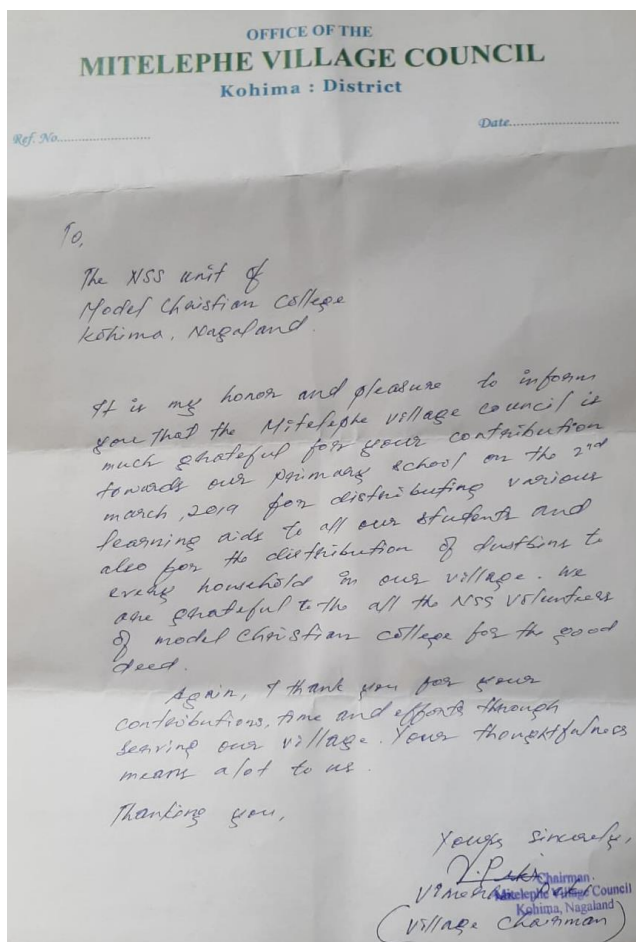 OFFICE OF THE
MITELEPHE VILLAGE COUNCIL
Kohima : District
Ref. No............................
Date..............................
To,
The NSS unit of
Model Christian College
Kohima, Nagaland.
It is my honor and pleasure to inform
you that the Mitelephe village council is
much grateful for your contribution
towards our primary school on the 2nd
march, 2019 for distributing various
learning aids to all our students and
also for the distribution of dustbins to
every household in our village. We
are grateful to the all the NSS Volunteers
of model Christian college for the good
deed.
Again, I thank you for your
contributions, time and efforts through
serving our village. Your thoughtfulness
means alot to us.
Thanking you,
Yours Sincerely,
Chairman
Mitelephe Village Council
Kohima, Nagaland
(Village Chairman)